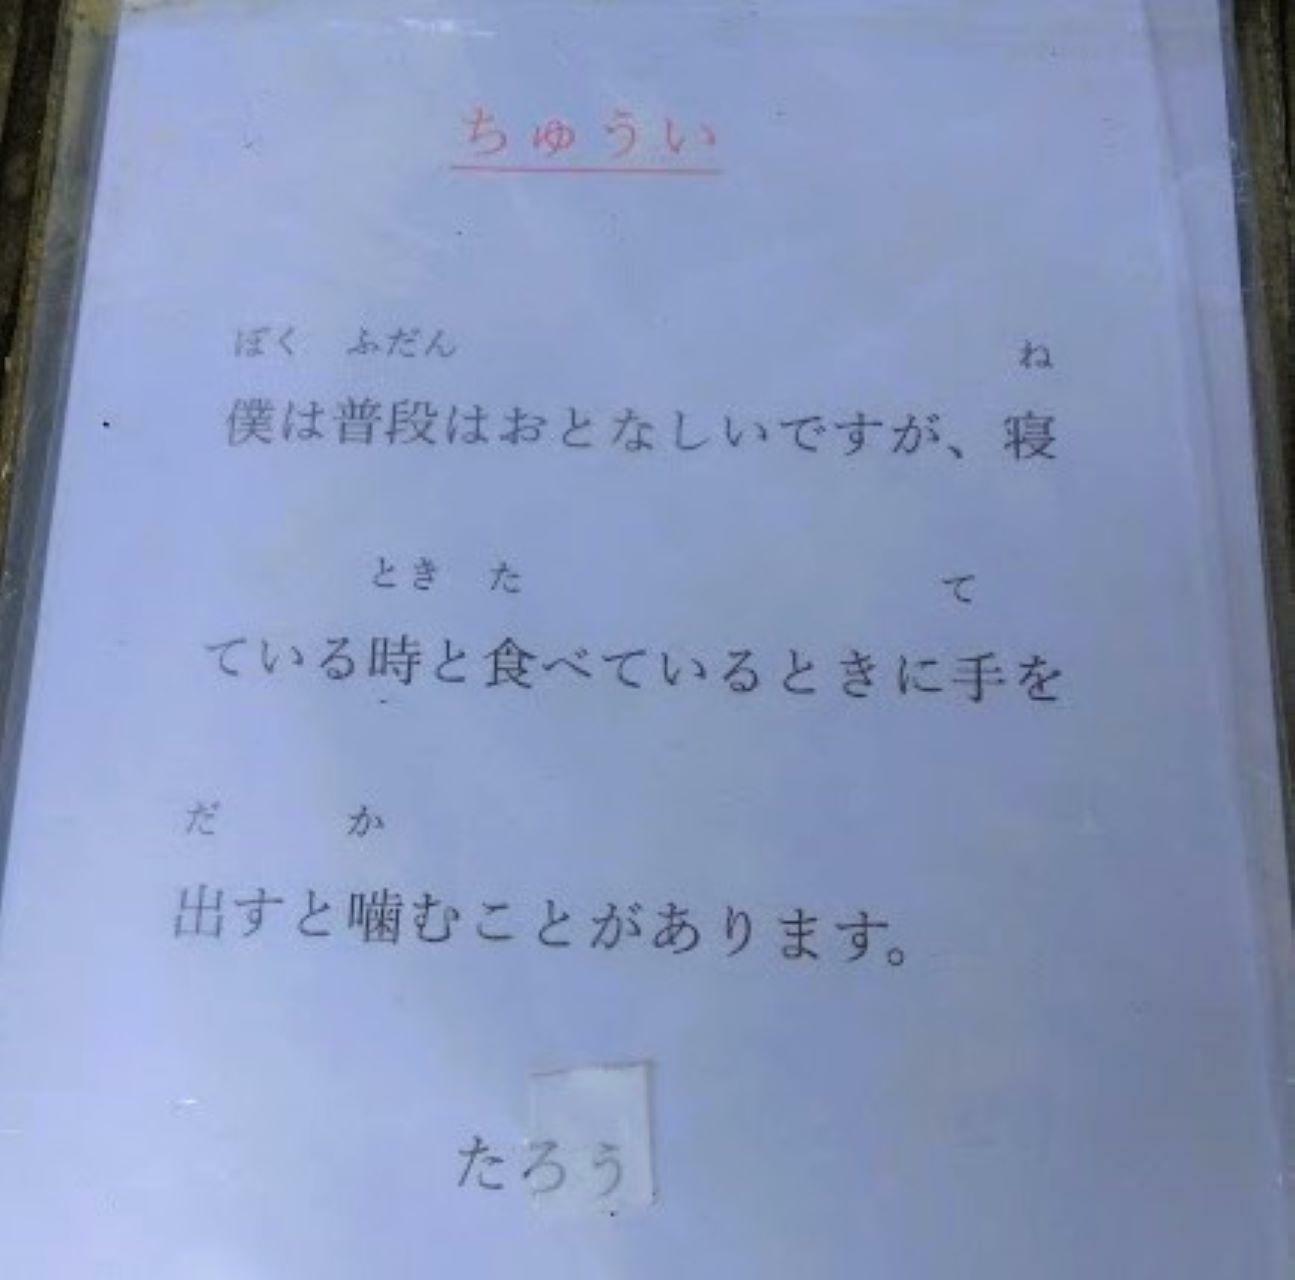 ちゅうい
ぼく ふだん ね
僕は普段はおとなしいですが、寝
とき た て
ている時と食べているときに手を
だ か
出すと噛むことがあります。
たろう